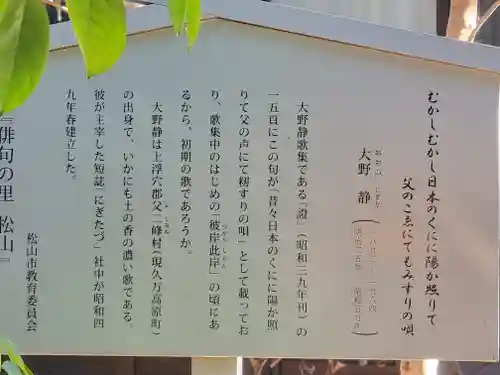 むかしむかし日本のくにに陽か照りて
父のこゑにてもみすりの唄
大野 静
大野静歌集である『澄』(昭和三九年刊)の
一五頁にこの句が「昔々日本のくにに陽か照
りて父の声にて籾すりの唄」として載ってお
り、歌集中のはじめの「彼岸此岸」の頃にあ
るから、初期の歌であろうか。
大野静は上浮穴郡父二峰村(現久万高原町)
の出身で、いかにも土の香の濃い歌である。
彼が主宰した短誌「にぎたづ」社中が昭和四
九年春建立した。
松山市教育委員会
『俳句の里 松山』